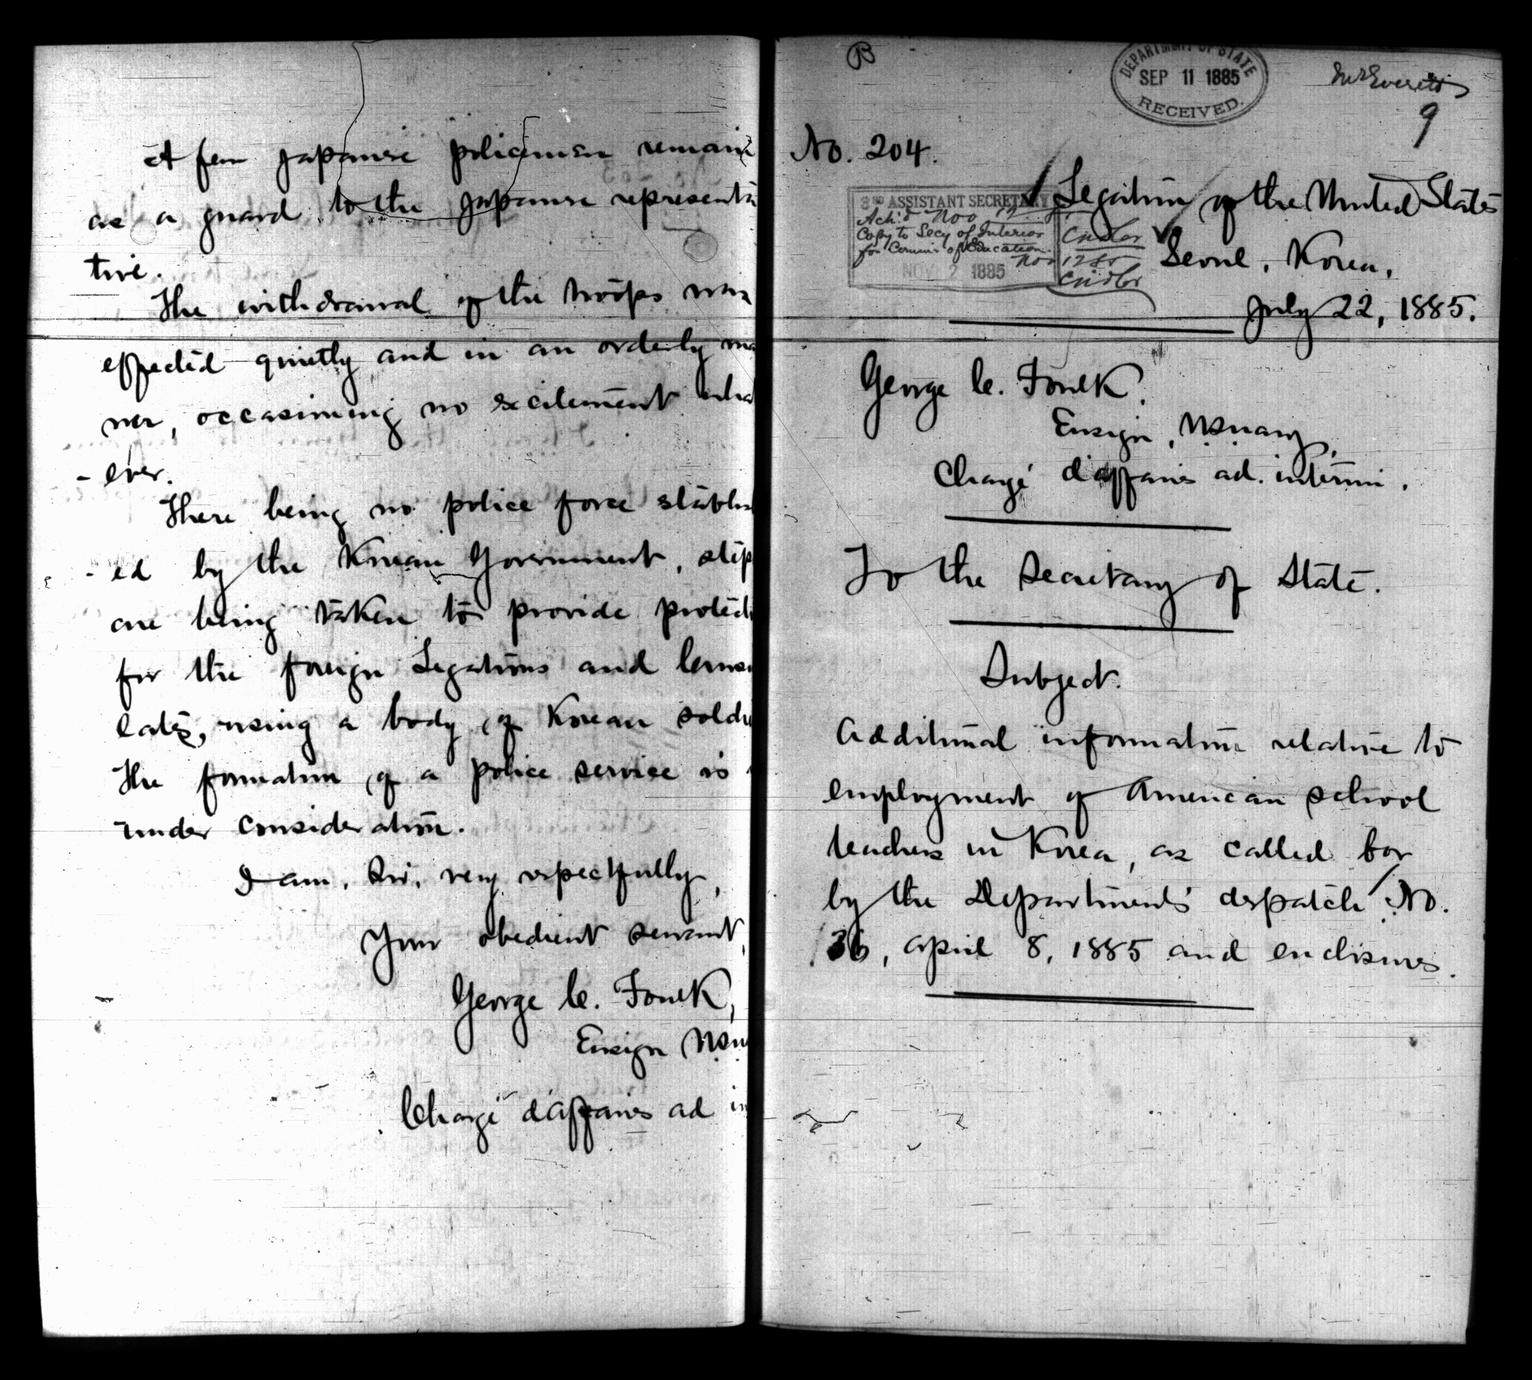 A few Japanese policemen remain
as a guard to the Japanese representa
tive.
The withdrawal of the troops was
effected quietly and in an orderly ma
ner, occasioning no excitement wha
- ever.
There being no police force establis
- ed by the Korean Government, step
are being taken to provide protecti
for the foreign Legations and Consu
lates, using a body of Korean soldi
The formation of a police service is
under consideration.
I am, Sir, very respectfully,
Your obedient servant,
George C. Foulk,
Ensign U.S.N
Chargé d'affaires ad in
B
DEPARTMENT OF STATE
SEP 11 1885
RECEIVED.
Mr Everett
9
No. 204.
Legation of the United States
Seoul, Korea,
July 22, 1885.
3RD ASSISTANT SECRETARY
Ack'd Nov
Copy to Secy of Interior
for Commr of Education
Nov
NOV 2 1885
George C. Foulk,
Ensign, U.S. Navy,
Chargé d'affaires ad. interim.
To the Secretary of State.
Subject.
Additional information relative to
employment of American school
teachers in Korea, as called for
by the Department's despatch No.
36, April 8, 1885 and enclosures.